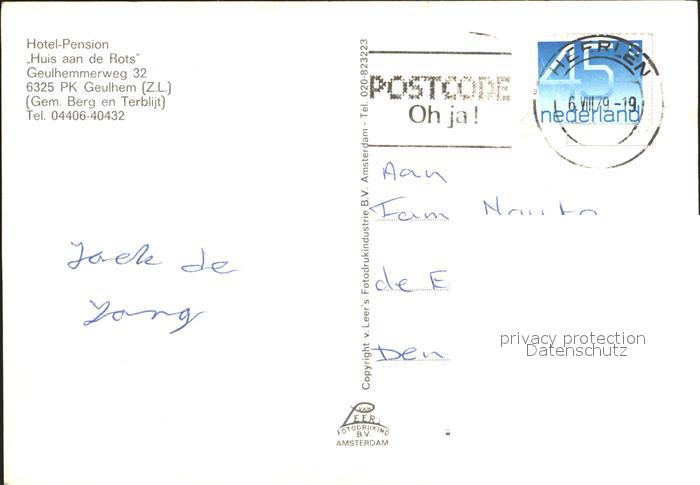 Hotel-Pension
„Huis aan de Rots"
Geulhemmerweg 32
6325 PK Geulhem (Z.L.)
(Gem. Berg en Terblijt)
Tel. 04406-40432
Jack de
Jong
Copyright v. Leer's Fotodrukindustrie B.V. Amsterdam - Tel. 020-823223
VAN
LEER
FOTODRUKIND
B.V.
AMSTERDAM
POSTCODE
Oh ja!
HEERLEN
6.VIII.79.-19
45
nederland
Aan
Fam
de E
Den
privacy protection
Datenschutz